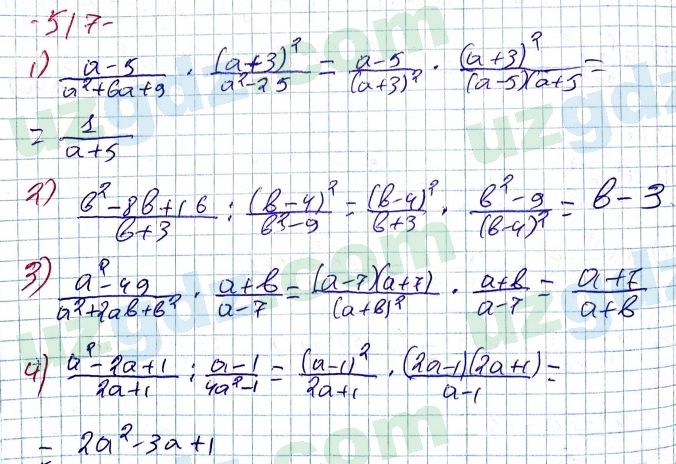 -517-
1) a-5/a²+6a+9 · (a+3)²/a²-25 = a-5/(a+3)² · (a+3)²/(a-5)(a+5) =
= 1/a+5
2) b²-8b+16/b+3 : (b-4)²/b²-9 = (b-4)²/b+3 · b²-9/(b-4)² = b-3
3) a²-49/a²+2ab+b² · a+b/a-7 = (a-7)(a+7)/(a+b)² · a+b/a-7 = a+7/a+b
4) a²-2a+1/2a+1 : a-1/4a²-1 = (a-1)²/2a+1 · (2a-1)(2a+1)/a-1 =
= 2a²-3a+1
uzgdz.com